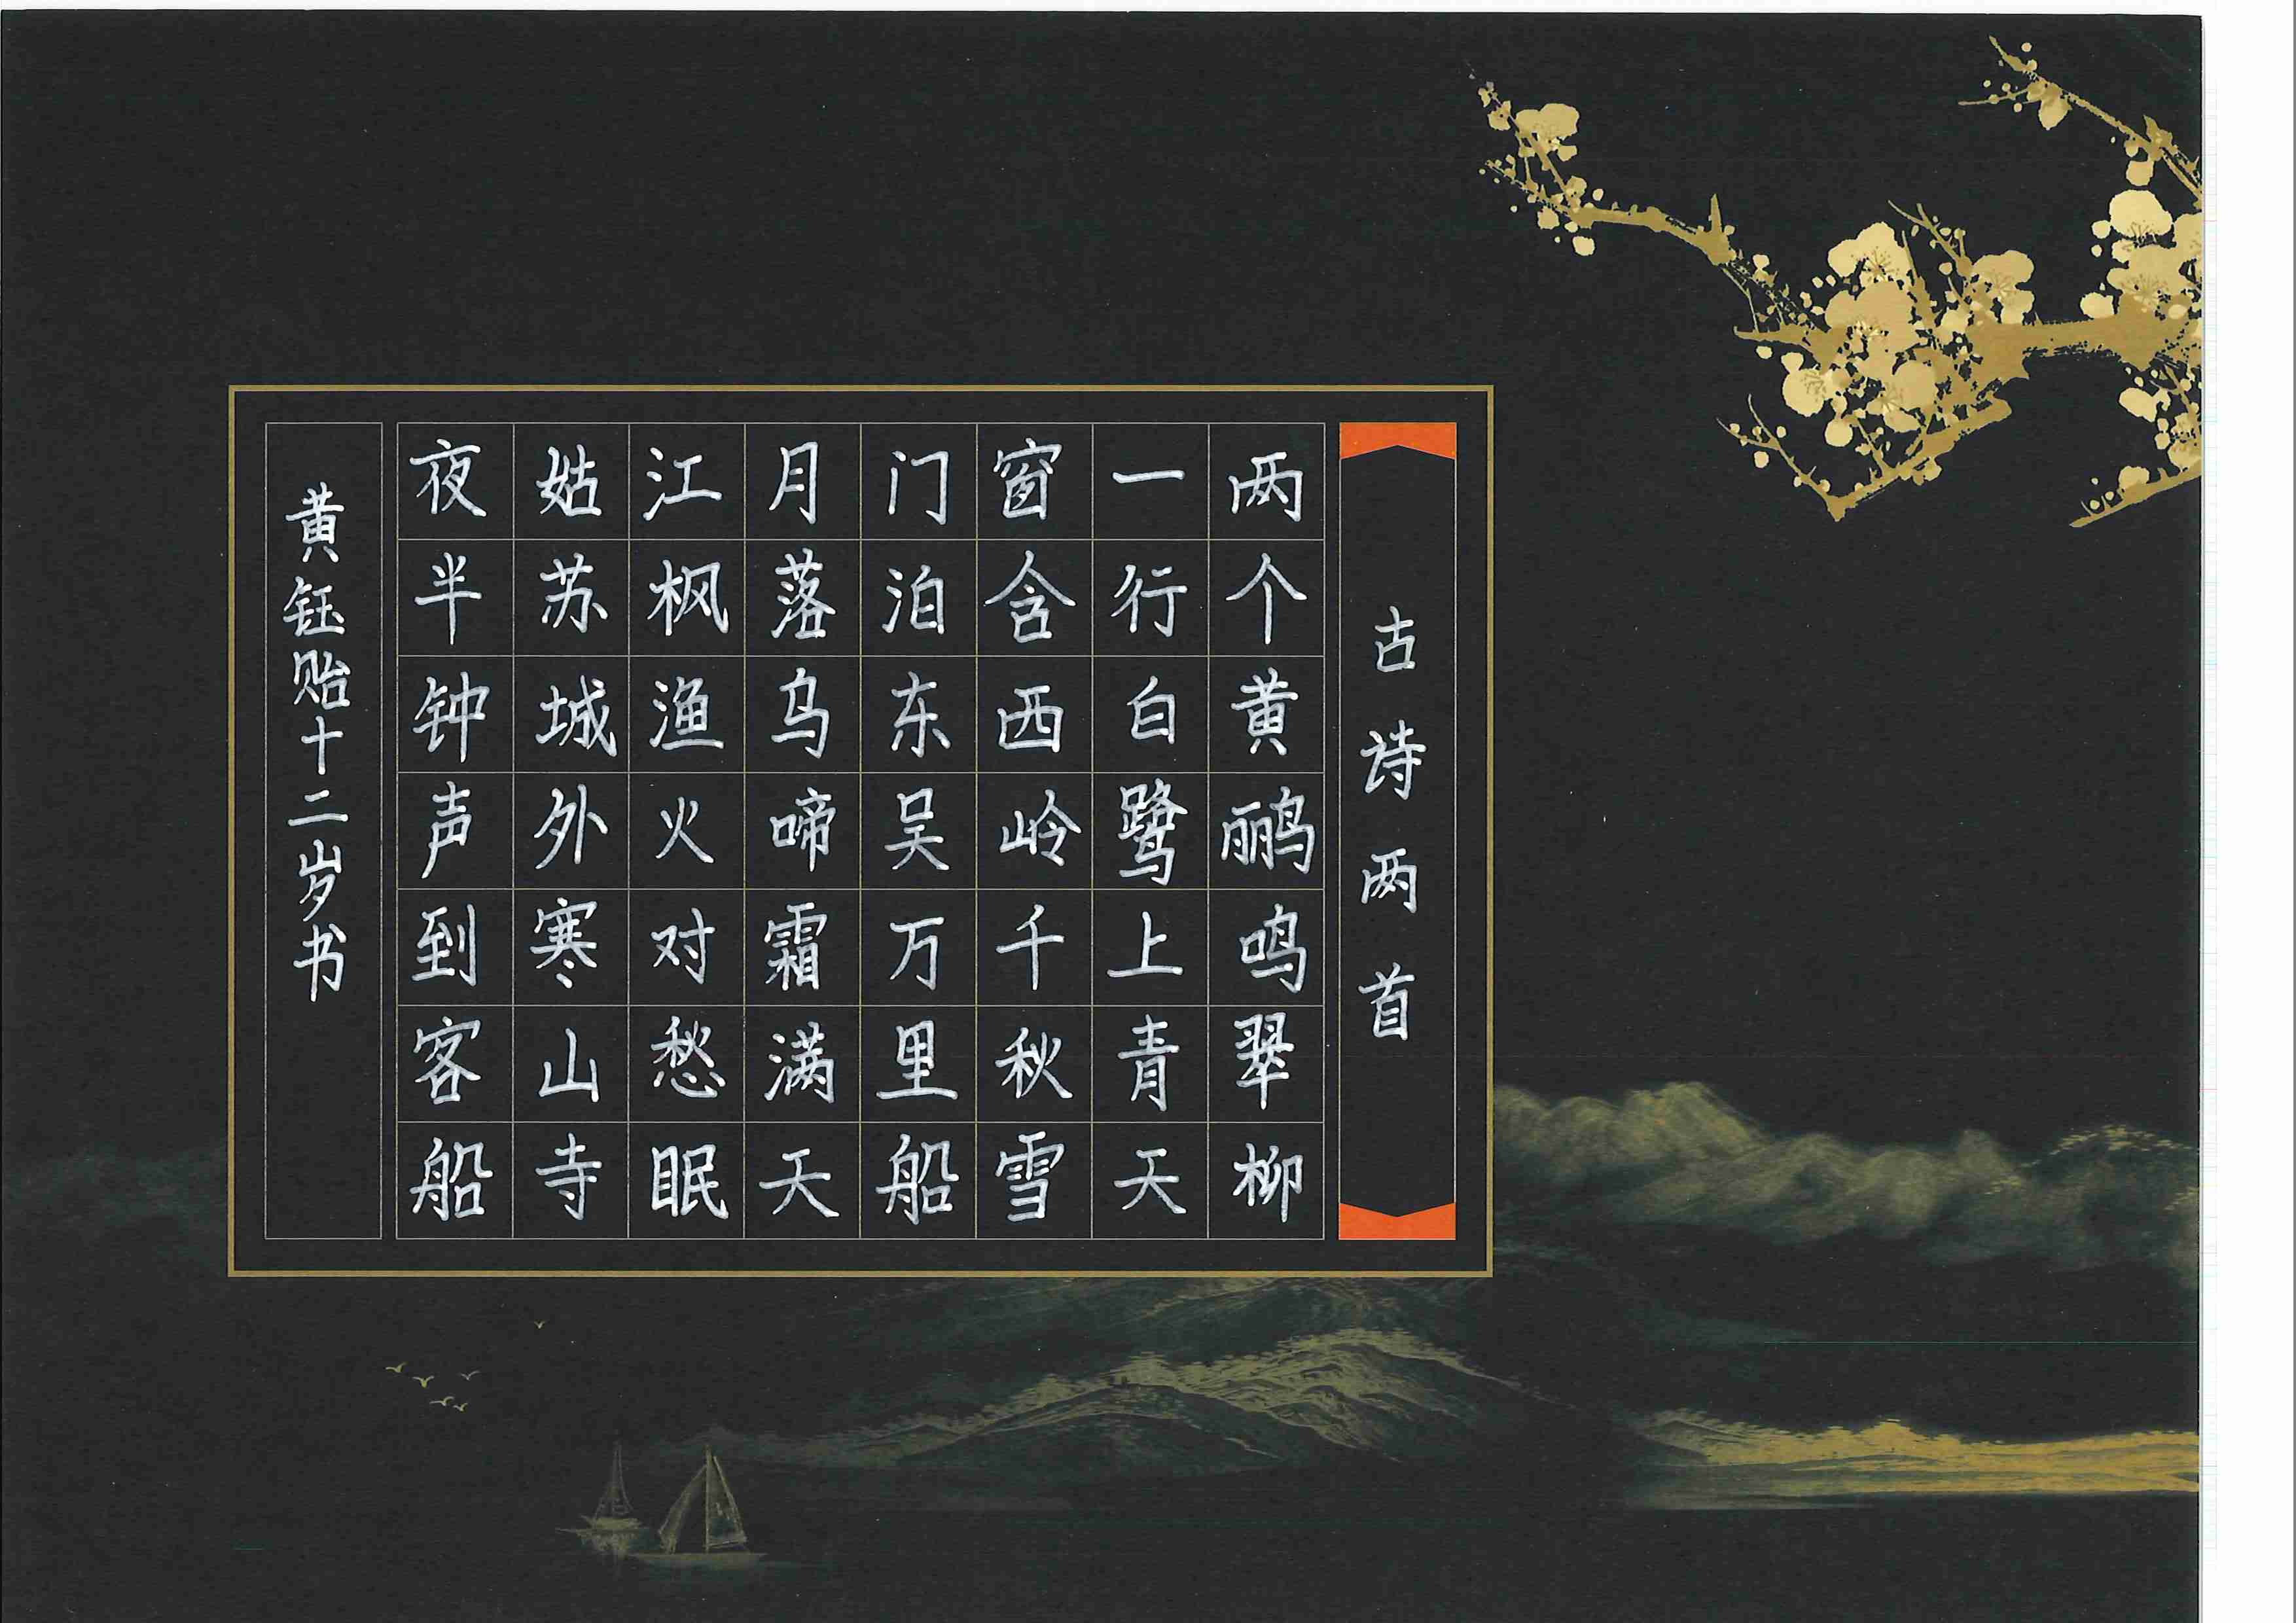 古诗两首
两个黄鹂鸣翠柳
一行白鹭上青天
窗含西岭千秋雪
门泊东吴万里船
月落乌啼霜满天
江枫渔火对愁眠
姑苏城外寒山寺
夜半钟声到客船
黄钰贻十二岁书